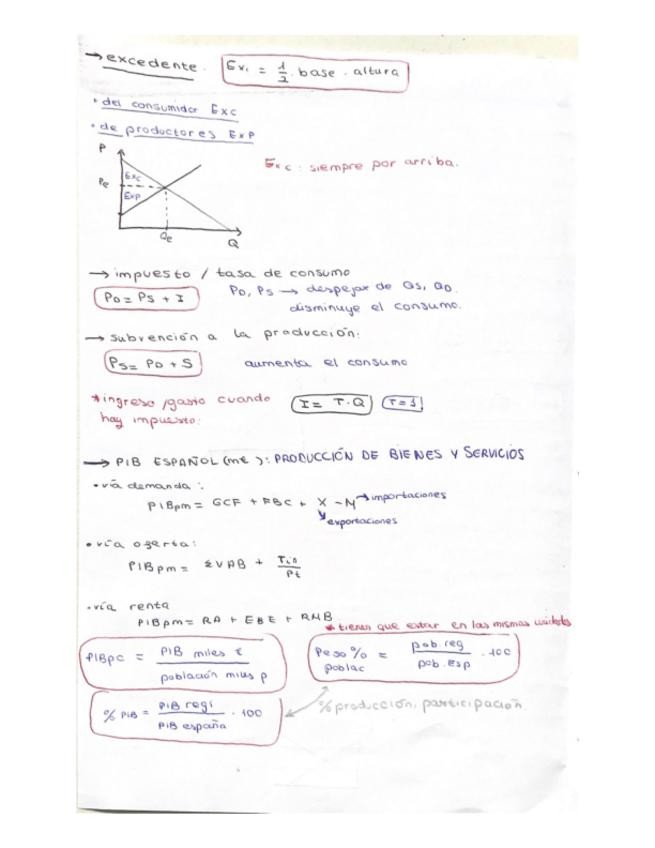 → excedente. Exc = 1/2 . base . altura
• del consumidor Exc
• de productores Exp
P
Exc: siempre por arriba.
Exc
Pe
Exp
Qe
Q
→ impuesto / tasa de consumo
PD = PS + I PD, PS → despejar de QS, QD.
disminuye el consumo.
→ subvención a la producción:
PS = PD + S aumenta el consumo
* ingreso /gasto cuando I = T.Q T=1
hay impuesto:
→ PIB ESPAÑOL (m€): PRODUCCIÓN DE BIENES Y SERVICIOS
• vía demanda:
PIBpm = GCF + FBC + X - M → importaciones
exportaciones
• vía oferta:
PIBpm = ΣVAB +
• vía renta
PIBpm = RA + EBE + RNB
* tienen que estar en las mismas unidades
PIBpc = PIB miles € / población miles p
Peso % poblac = pob. reg / pob. Esp . 100
% PIB = PIB regi / PIB españa . 100
% producción, participación